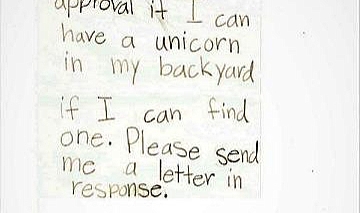 approval if I can
have a unicorn
in my backyard
if I can find
one. Please send
me a letter in
response.